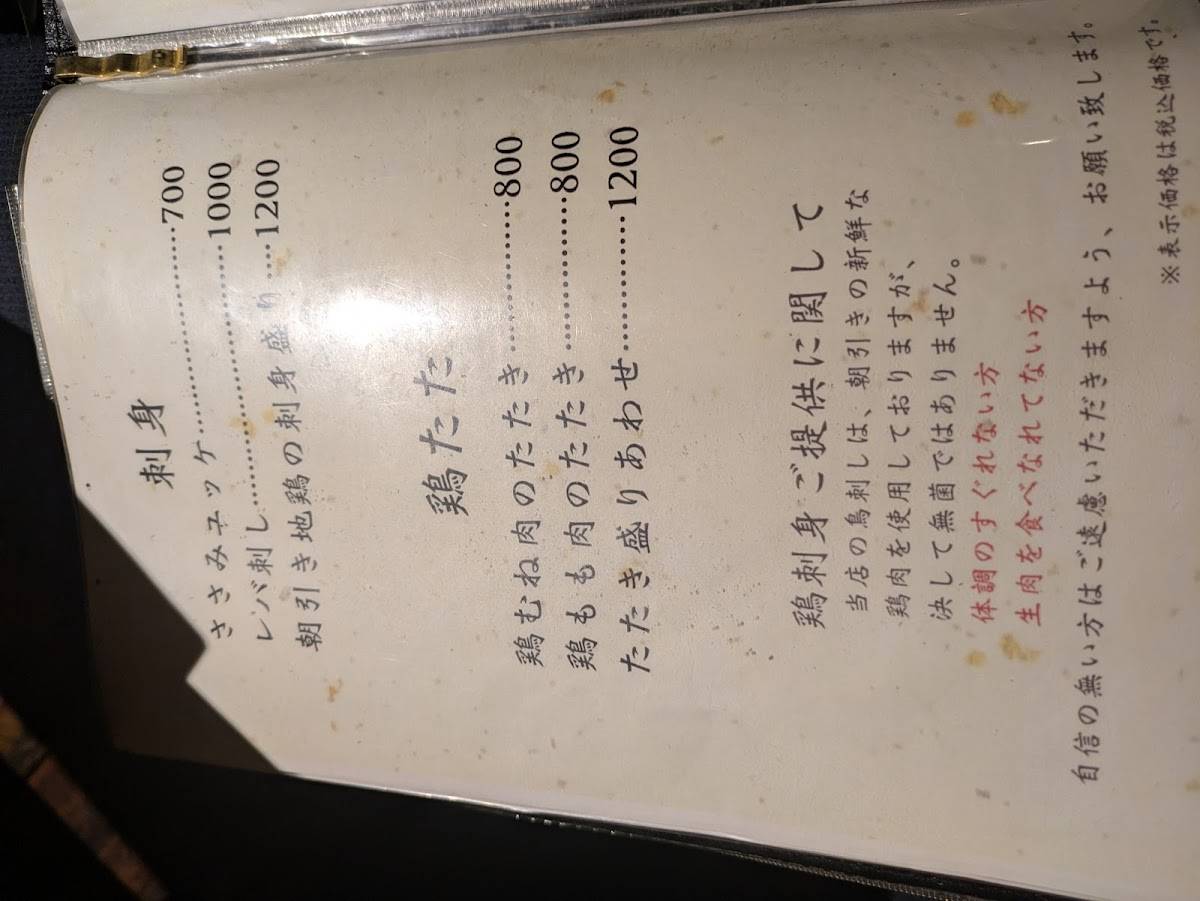 刺身
ささみユッケ…………………700
レバ刺し………………………1000
朝引き地鶏の刺身盛り…1200
鶏たた
鶏むね肉のたたき…………800
鶏もも肉のたたき…………800
たたき盛りあわせ…………1200
鶏刺身ご提供に関して
当店の鳥刺しは、朝引きの新鮮な
鶏肉を使用しておりますが、
決して無菌ではありません。
体調のすぐれない方
生肉を食べなれてない方
自信の無い方はご遠慮いただきますよう、お願い致します。
※表示価格は税込価格です。